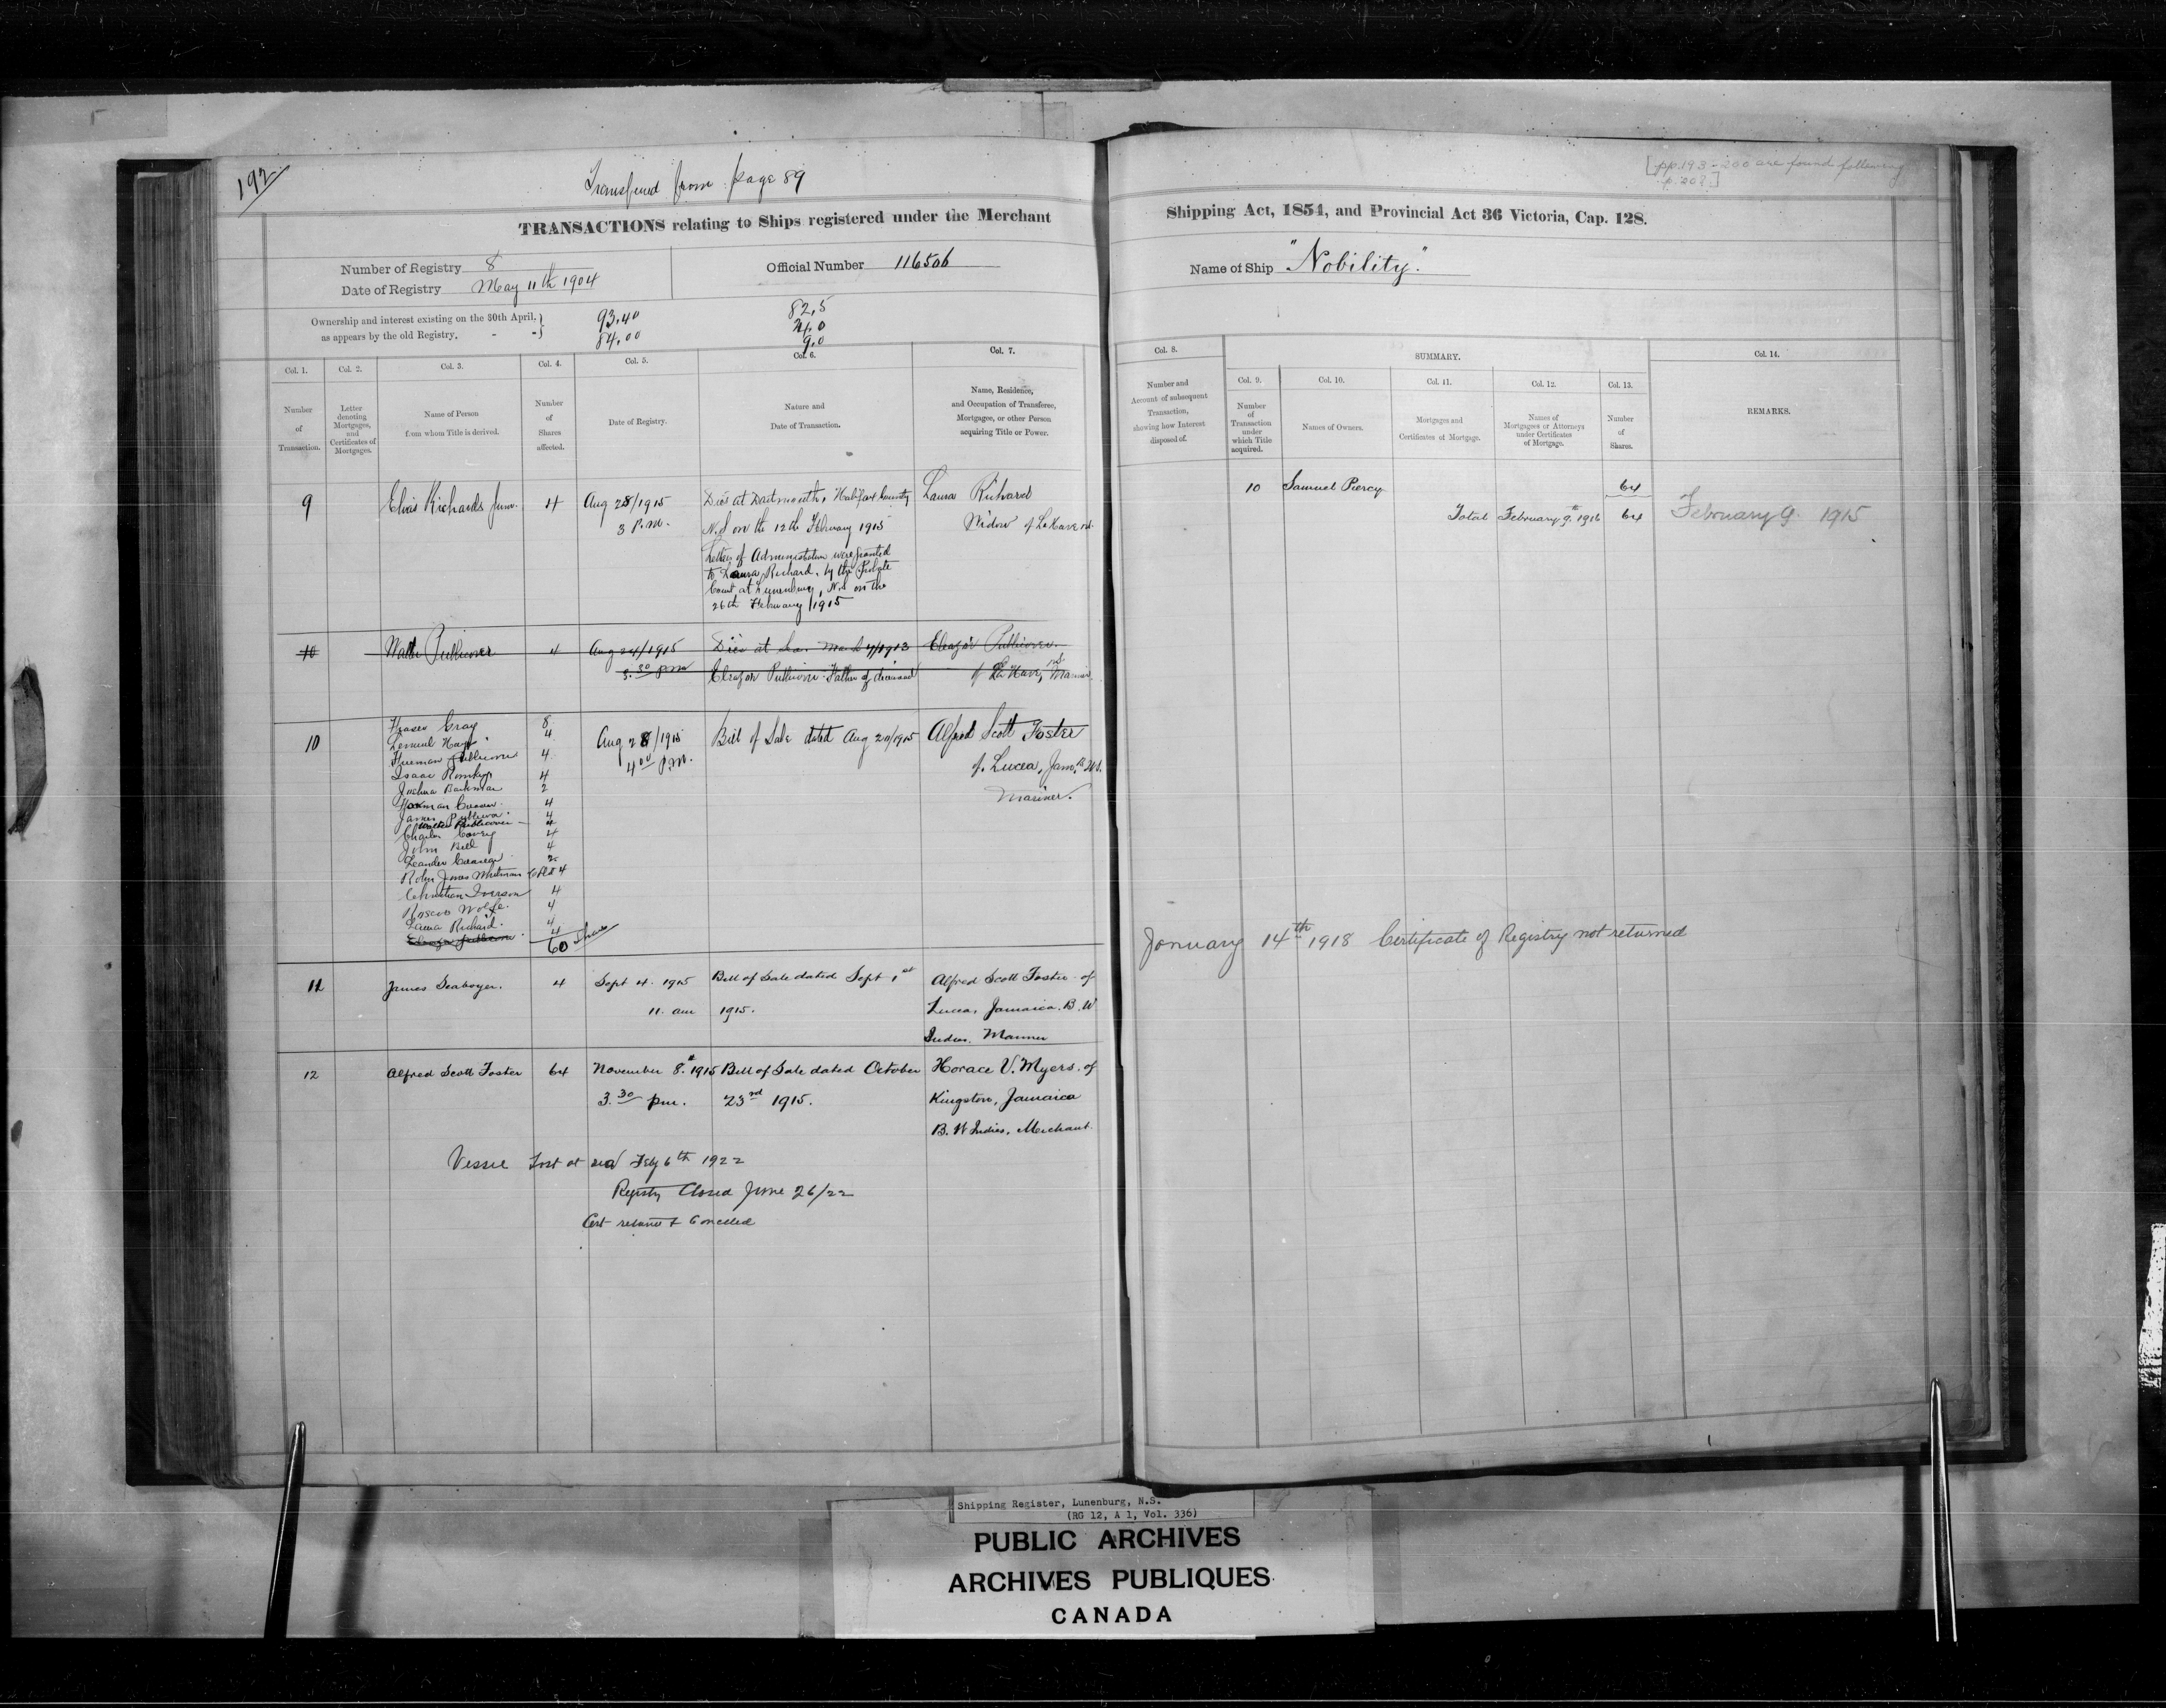 192
Transfered from page 89
[pp.193-200 are found following
p.202.]
TRANSACTIONS relating to Ships registered under the Merchant
Shipping Act, 1854, and Provincial Act 36 Victoria, Cap. 128.
Number of Registry 8
Official Number 116506
Name of Ship "Nobility."
Date of Registry May 11th 1904
Ownership and interest existing on the 30th April,
as appears by the old Registry, - -
93.40
84.00
82.5
24.0
9.0
Col. 1.
Col. 2.
Col. 3.
Col. 4.
Col. 5.
Col. 6.
Col. 7.
Col. 8.
SUMMARY.
Col. 9.
Col. 10.
Col. 11.
Col. 12.
Col. 13.
Col. 14.
Number
of
Transaction.
Letter
denoting
Mortgages,
and
Certificates of
Mortgages.
Name of Person
from whom Title is derived.
Number
of
Shares
affected.
Date of Registry.
Nature and
Date of Transaction.
Name, Residence,
and Occupation of Transferee,
Mortgagee, or other Person
acquiring Title or Power.
Number and
Account of subsequent
Transaction,
showing how Interest
disposed of.
Number
of
Transaction
under
which Title
acquired.
Names of Owners.
Mortgages and
Certificates of Mortgage.
Names of
Mortgagees or Attorneys
under Certificates
of Mortgage.
Number
of
Shares.
REMARKS.
9
Richards Junr.
4
Aug 28/1915
3 P.M.
Died at Dartmouth, Halifax County
N.S on the 12th February 1915
Letters of Administration were granted
to Laura Richard, by the Probate
Court at Lunenburg, N.S on the
26th February 1915
Laura Richard
Widow of LaHave N.S.
10
Walter Publicover
4
Aug 24/1915
3.30 P.M
Died at Sea. March 7/1913
Eleazor Publicover Father of deceased
Eleazor Publicover
of La Have, N.S. Mariner.
10
Fraser Gray 8
Lemuel 4
Freeman Publicover 4
Isaac Romkey 4
Joshua Bachman 2
Creaser 4
James Publicover 4
Walter Publicover 4
Charles Covey 4
John Bell 4
Leander 2
Robin Jones Whitman Co Ltd 4
Christian Iverson 4
Roscoe Wolfe. 4
Laura Richard. 4
Eleazor Publicover. 4
60 Shares
Aug 28/1915
4.00 P.M.
Bill of Sale dated Aug 20/1915
Alfred Scott Foster
of Lucea, Jam. B.W.I.
Mariner.
11
James Seaboyer.
4
Sept 4. 1915
11. am
Bill of Sale dated Sept 1st
1915.
Alfred Scott Foster of
Lucea, Jamaica. B. W
Indies. Mariner
12
Alfred Scott Foster
64
November 8th 1915
3.30 pm.
Bill of Sale dated October
23rd 1915.
Horace V. Myers. of
Kingston, Jamaica
B. W Indies, Merchant.
Vessel Lost at sea Feby 6th 1922
Registry Closed June 26/22
Cert returned & Cancelled
10 Samuel Piercy 64
Total February 9th 1916 64
February 9. 1915
January 14th 1918 Certificate of Registry not returned
Shipping Register, Lunenburg, N.S.
(RG 12, A 1, Vol. 336)
PUBLIC ARCHIVES
ARCHIVES PUBLIQUES
CANADA